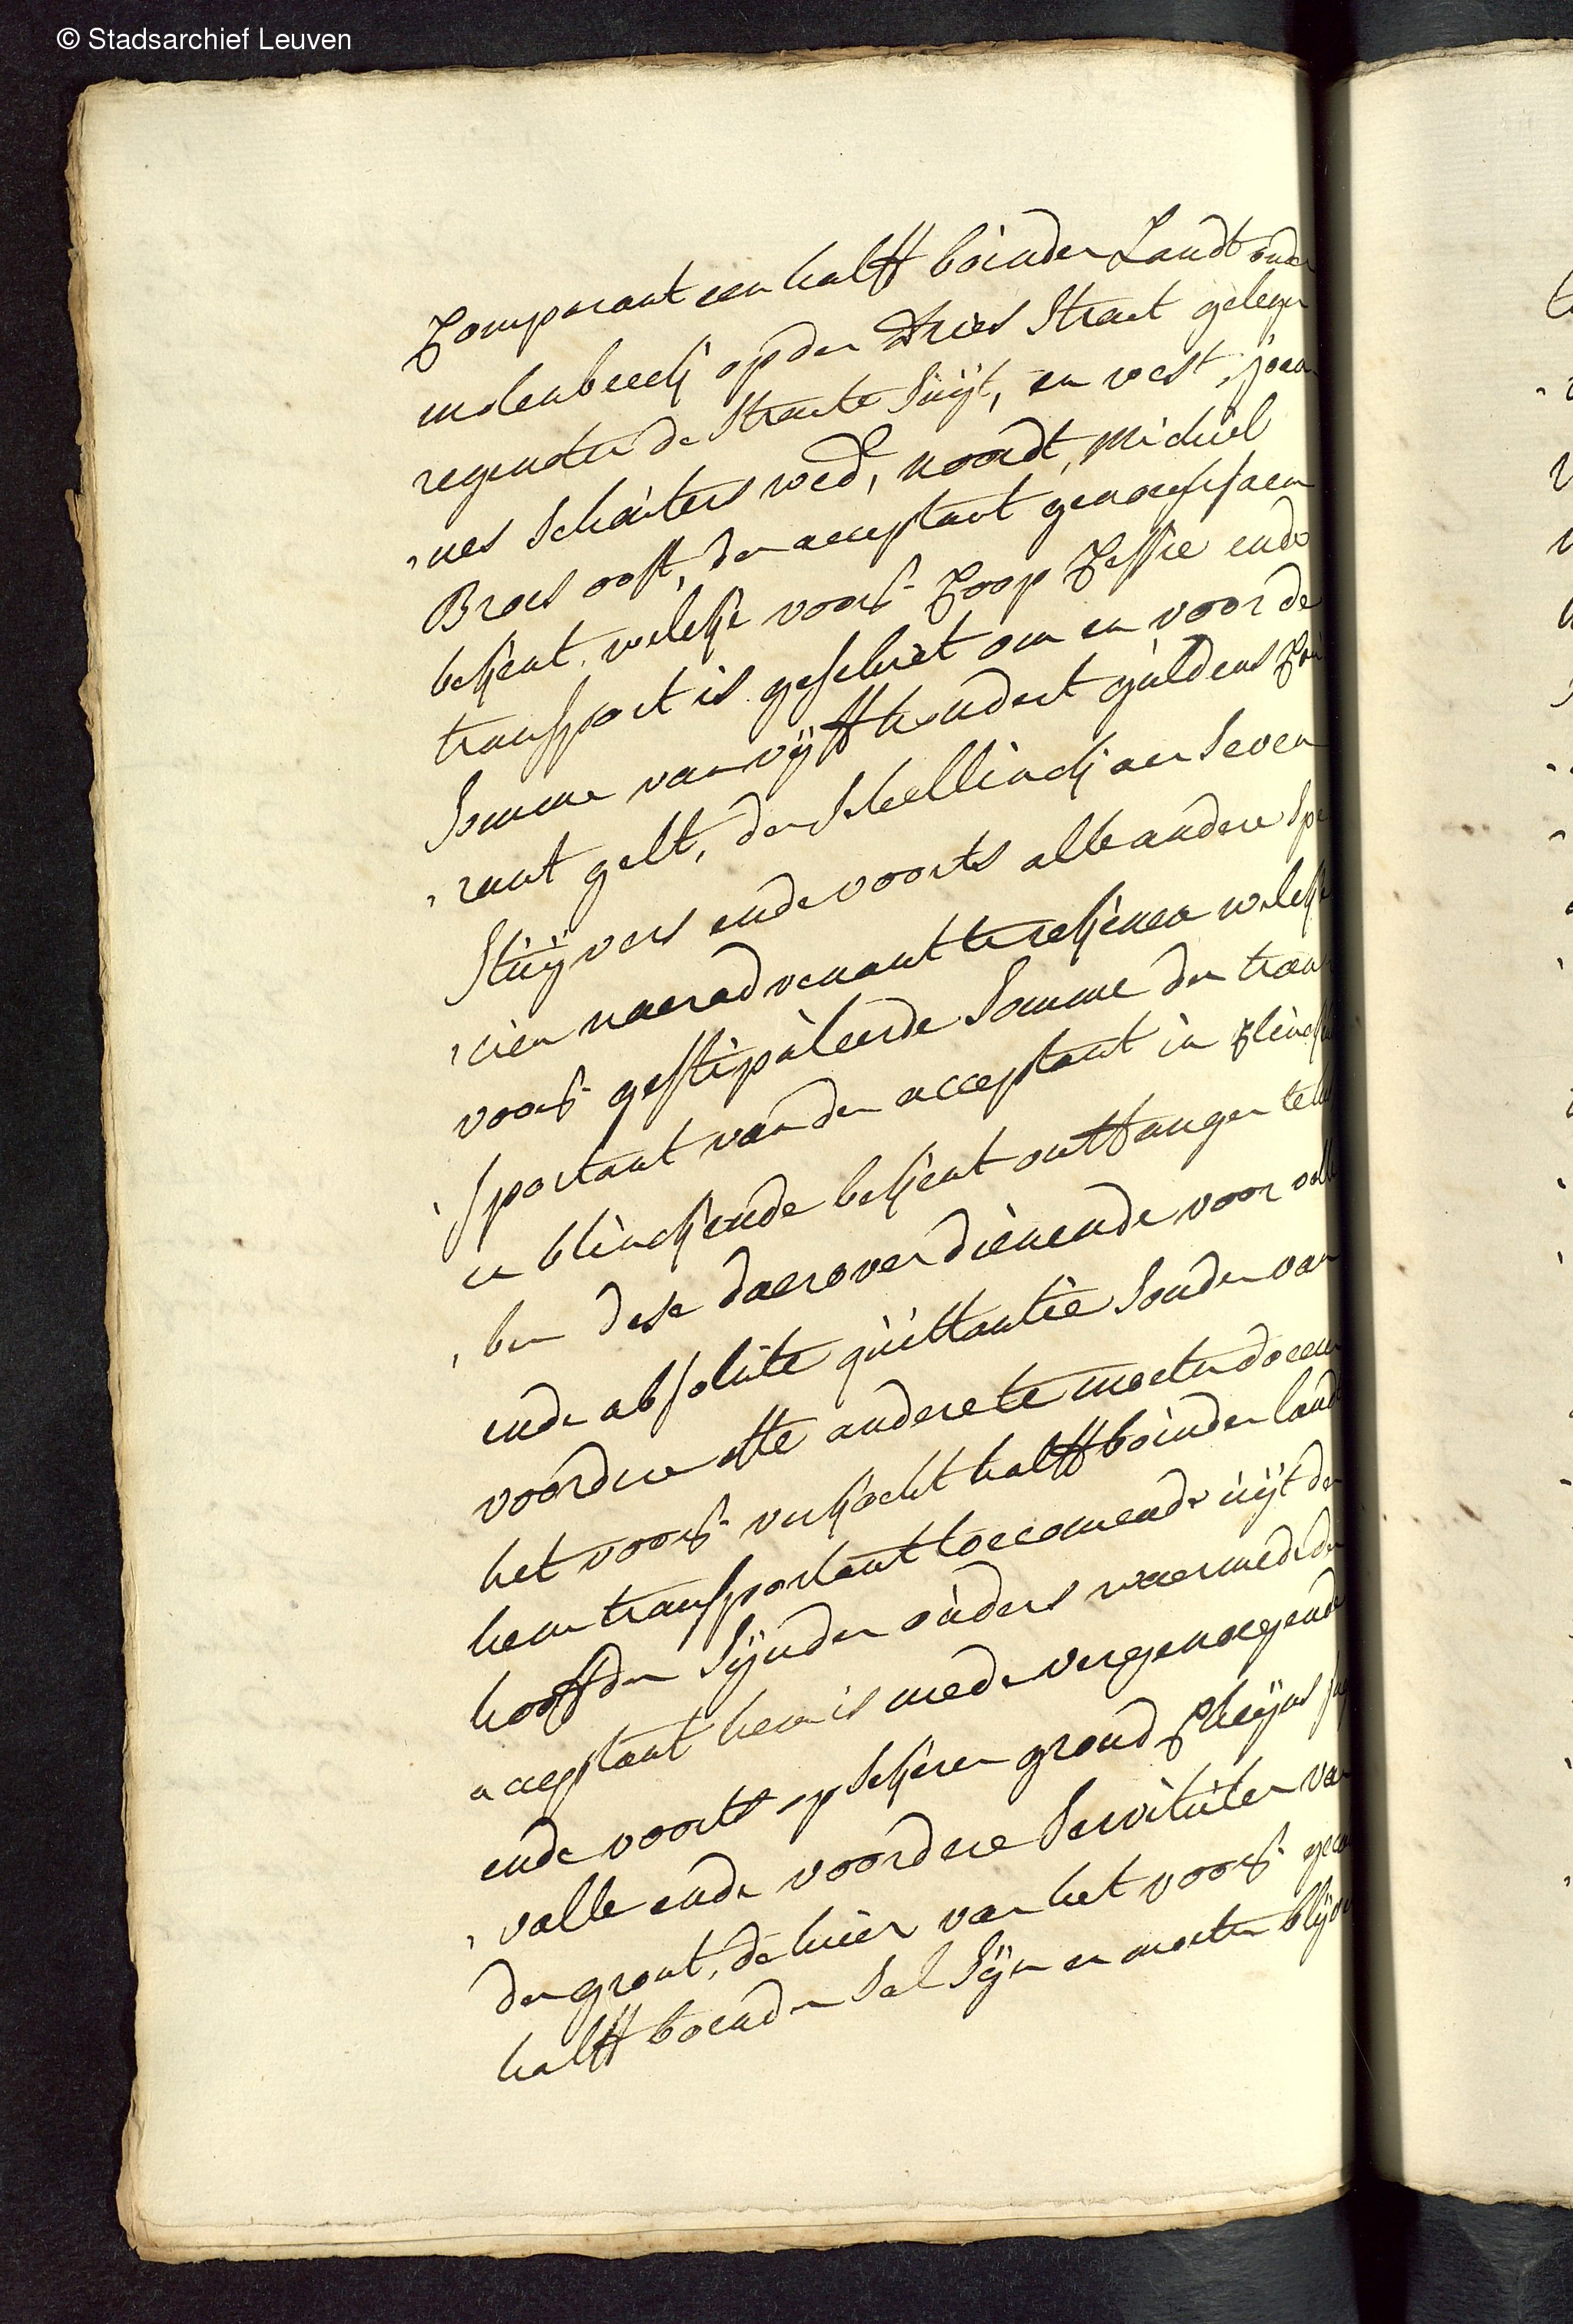 © Stadsarchief Leuven
Comparant een halff boinder Landt onder
molenbeeck op den dries Straet gelegen
regenoten de Straete Suijt, en west, joan
nes Schouters wed, noordt, Michiel
Broes oost, den acceptant genoechsaem
bekent, welcke voors. Coop Cessie ende
transport is geschiet om en voor de
Somme van vijff hondert guldens Cou
rant gelt, den Schellinck aen Seven
Stuijvers ende voorts alle andere Spe
cien naer advenant te rekenen welcke
voors. gestipuleerde Somme den tran
sportant van den acceptant in Clincken
en blinckende bekent ontfangen te heb
ben dese daer over dienende voor volle
ende absolute quittantie Sonder van
voordere ofte andere te moeten doceren
het voors. verkocht halff boinder landt
hem transportant toecomende uijt den
hoofde Sijnder ouders waermede den
acceptant hem is mede vergenoegende
ende voorts op sekeren grond Cheijns
valle ende voordere Servituten van
den gront, de huer van het voors.
halff boender Sal Sijn en moeten blijven